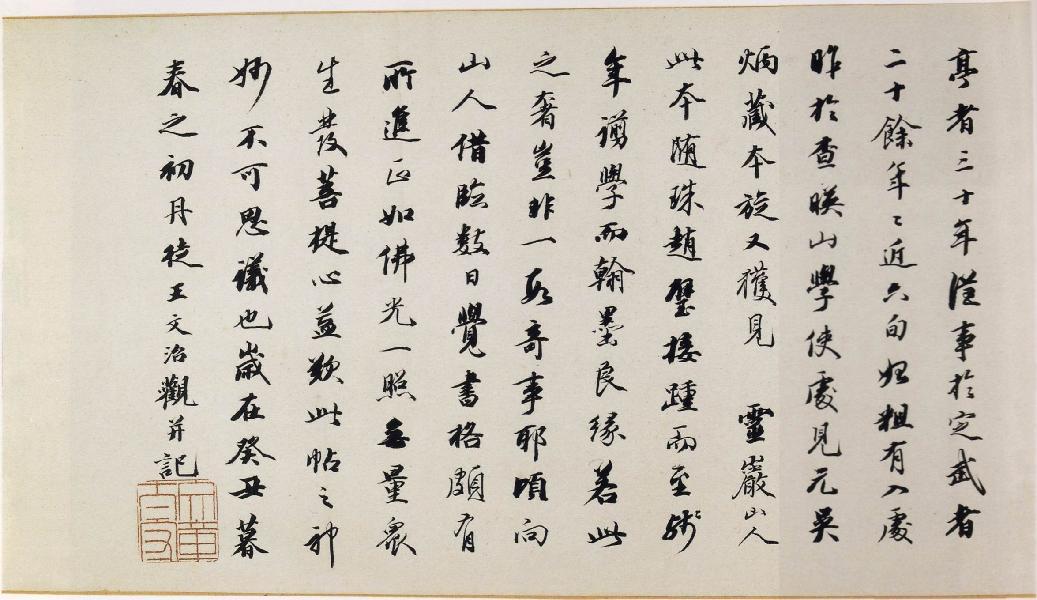 亭者三十年從事於定武者
二十餘年々近六旬始粗有入處
昨於查暎山學使處見元吳
炳藏本旋又獲見 靈巖山人
此本隨珠趙璧接踵而至殘
年謭學而翰墨良緣若此
之奢豈非一段奇事耶頃向
山人借臨數日覺書格頗有
所進正如佛光一照無量衆
生發菩提心益歎此帖之神
妙不可思議也歲在癸丑暮
春之初丹徒王文治觀并記